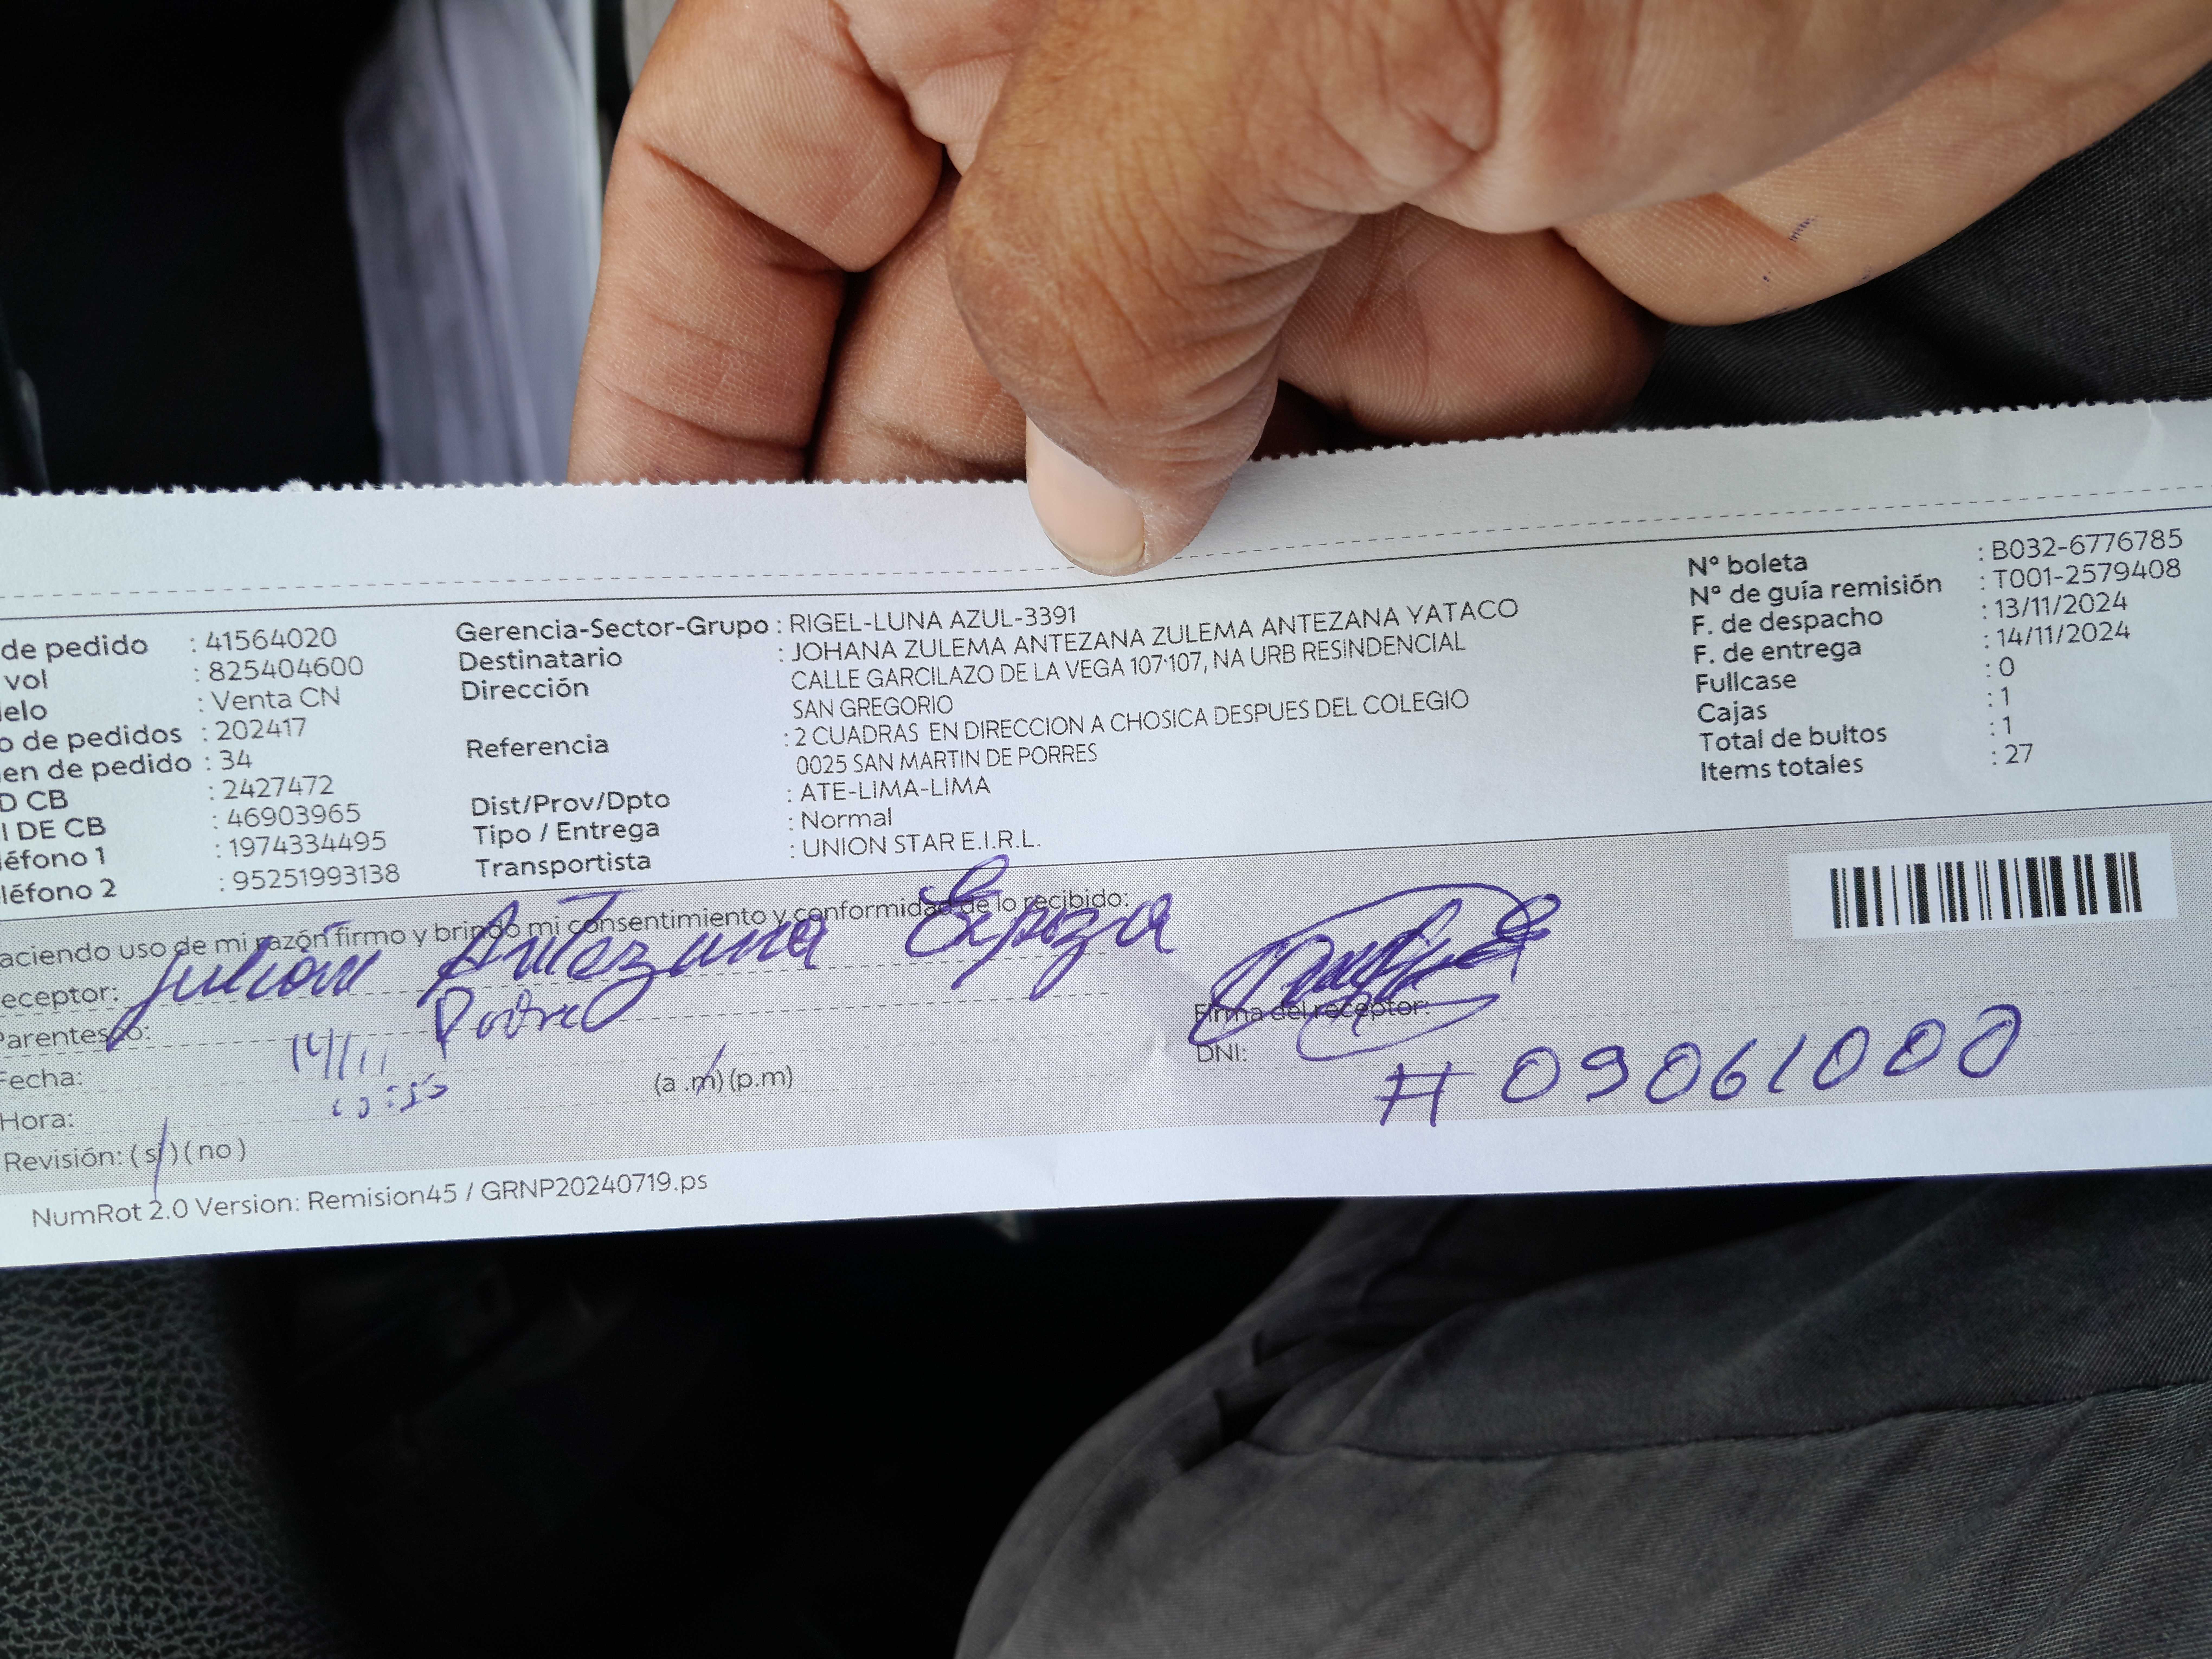 de pedido : 41564020
vol : 825404600
elo : Venta CN
o de pedidos : 202417
en de pedido : 34
D CB : 2427472
I DE CB : 46903965
léfono 1 : 1974334495
léfono 2 : 95251993138
Gerencia-Sector-Grupo : RIGEL-LUNA AZUL-3391
Destinatario : JOHANA ZULEMA ANTEZANA ZULEMA ANTEZANA YATACO
Dirección CALLE GARCILAZO DE LA VEGA 107-107, NA URB RESINDENCIAL
SAN GREGORIO
Referencia : 2 CUADRAS EN DIRECCION A CHOSICA DESPUES DEL COLEGIO
0025 SAN MARTIN DE PORRES
Dist/Prov/Dpto : ATE-LIMA-LIMA
Tipo / Entrega : Normal
Transportista : UNION STAR E.I.R.L.
N° boleta : B032-6776785
N° de guía remisión : T001-2579408
F. de despacho : 13/11/2024
F. de entrega : 14/11/2024
Fullcase : 0
Cajas : 1
Total de bultos : 1
Items totales : 27
aciendo uso de mi razón firmo y brindo mi consentimiento y conformidad de lo recibido:
eceptor: Julian Antezana
Parentesco: Padre
Fecha: 14/11
Hora: (a .m) (p.m)
Revisión: ( si ) ( no )
Firma del receptor:
DNI: # 09061000
NumRot 2.0 Version: Remision45 / GRNP20240719.ps